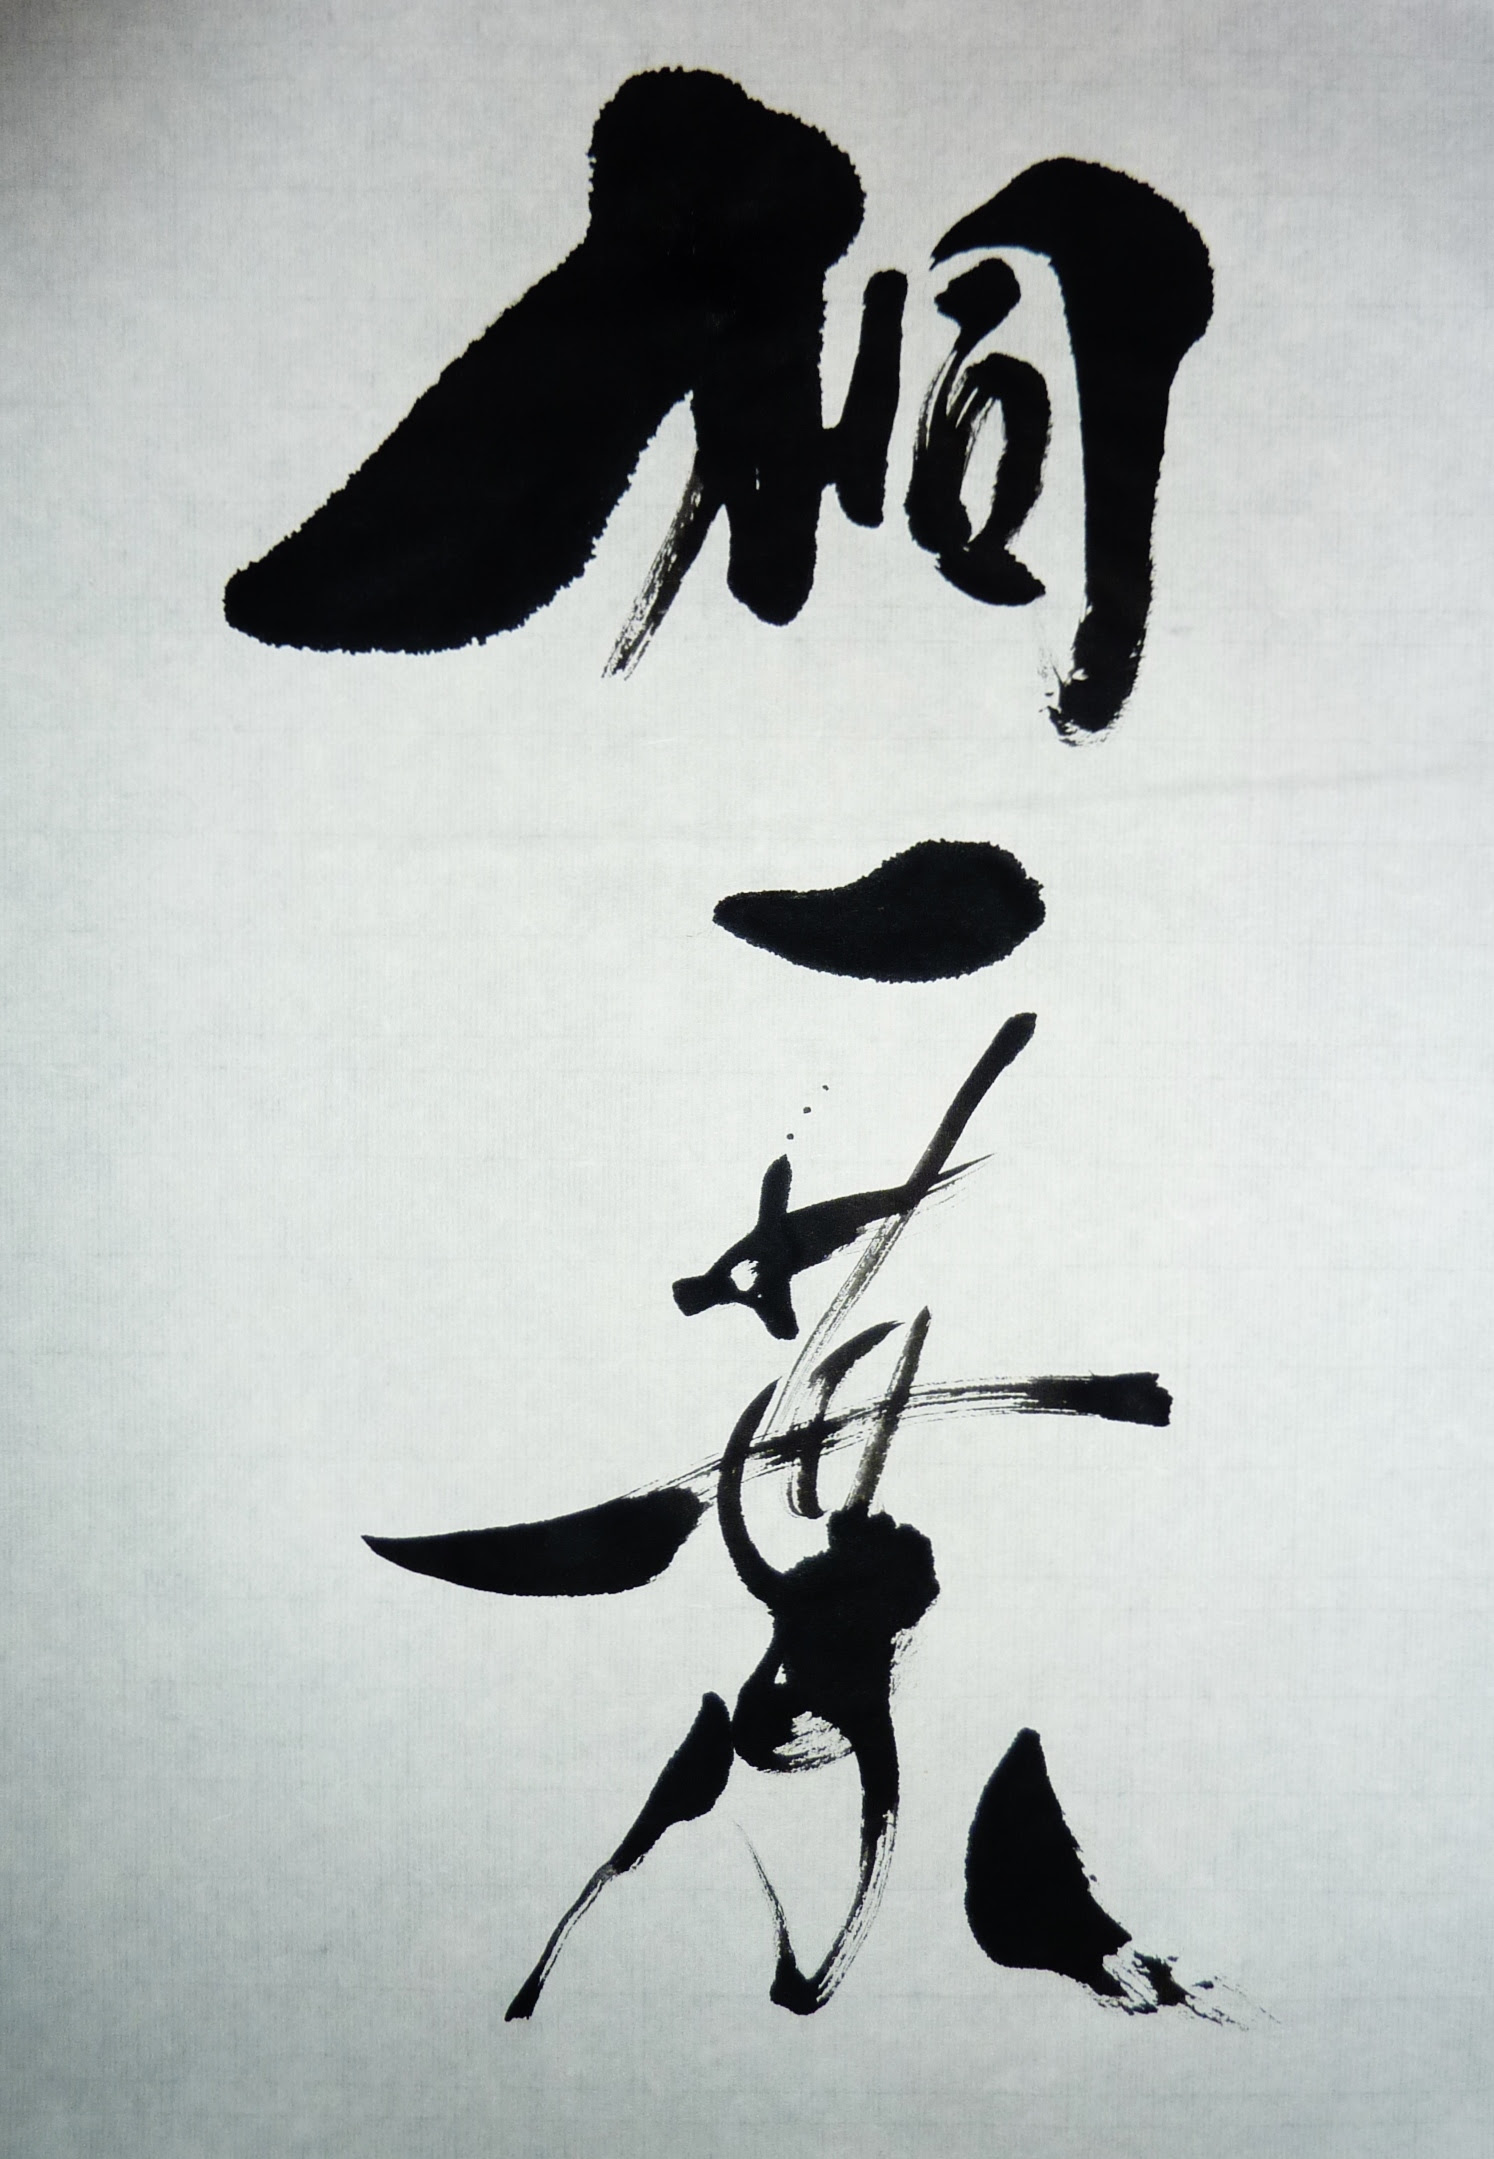 桐一葉